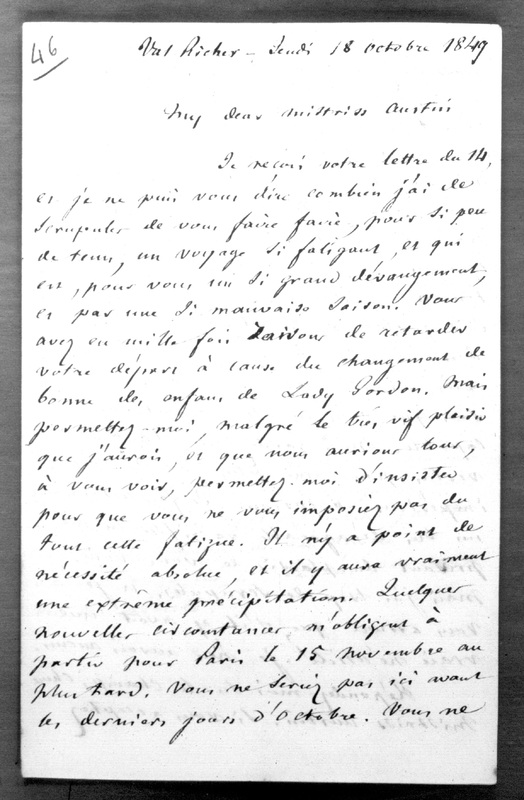 46
Val Richer - Jeudi 18 octobre 1849
My dear mistriss Austin
Je reçois votre lettre du 14,
et je ne puis vous dire combien j'ai de
scrupules de vous faire faire, pour si peu
de tems, un voyage si fatigant, et qui
est, pour vous un si grand dérangement,
et par une si mauvaise saison. Vous
avez eu mille fois raison de retarder
votre départ à cause du changement de
bonne des enfans de Lady Gordon. Mais
permettez-moi, malgré le très vif plaisir
que j'aurois, et que nous aurions tous,
à vous voir, permettez-moi d'insister
pour que vous ne vous imposiez pas du
tout cette fatigue. Il n'y a point de
nécessité absolue, et il y aura vraiment
une extrême précipitation. Quelques
nouvelles circonstances m'obligent à
partir pour Paris le 15 novembre au
plus tard. Vous ne seriez pas ici avant
les derniers jours d'Octobre. Vous ne